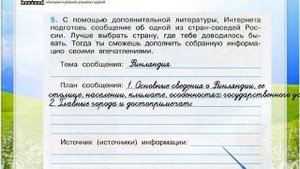 5. С помощью дополнительной литературы, Интернета
подготовь сообщение об одной из стран-соседей Рос-
сии. Лучше выбрать страну, где тебе доводилось бы-
вать. Тогда ты сможешь дополнить собранную информа-
цию своими впечатлениями.
Тема сообщения: Финляндия
План сообщения: 1. Основные сведения о Финляндии, ее
столице, населении, климате, особенностях государственного
2. Главные города и достопримечат
Источник (источники) информации: